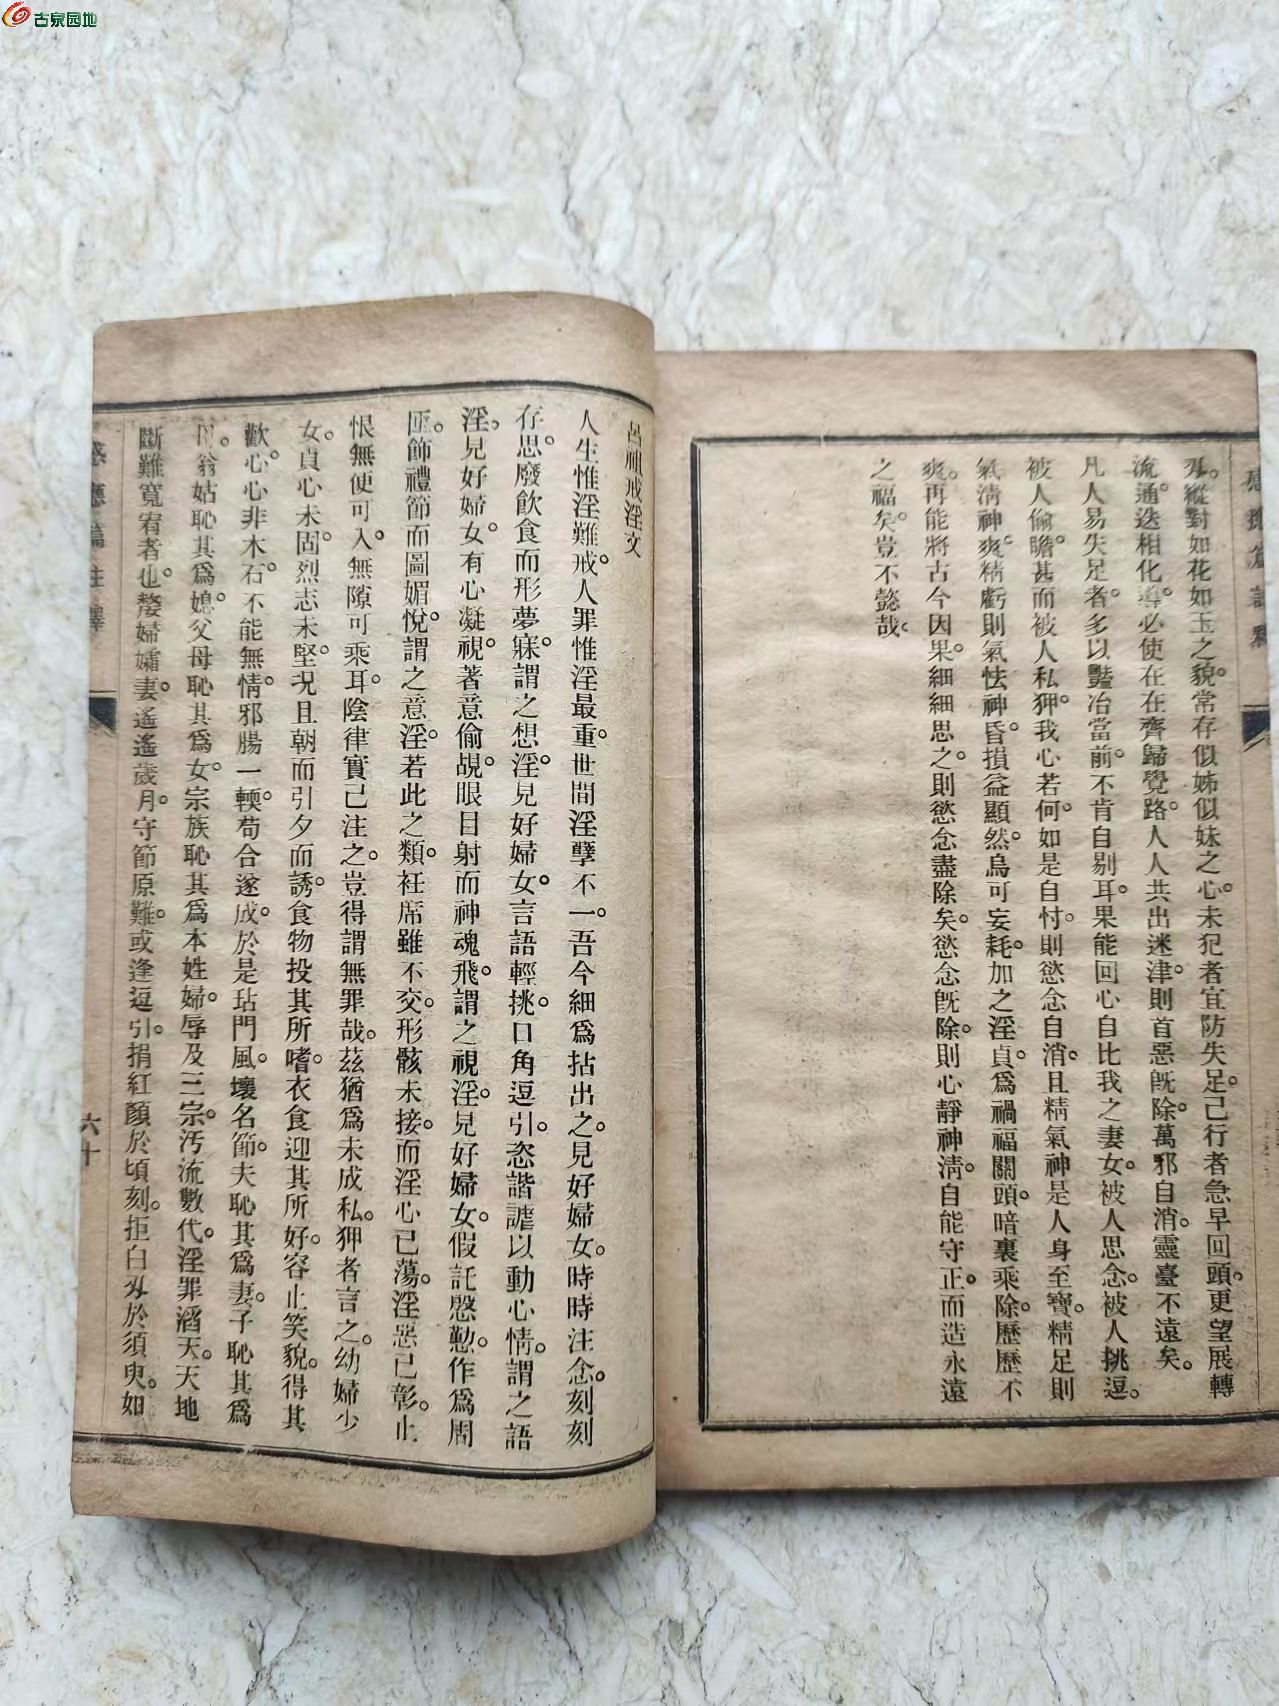 古泉园地
刄。縱對如花如玉之貌。常存似姊似妹之心。未犯者宜防失足。已行者急早回頭。更望展轉
流通。迭相化導。必使在在齊歸覺路。人人共出迷津。則首惡旣除。萬邪自消。靈臺不遠矣。
凡人易失足者。多以豔冶當前。不肯自剔耳。果能回心自比。我之妻女。被人思念。被人挑逗。
被人偷瞻。甚而被人私狎。我心若何。如是自忖。則慾念自消。且精氣神是人身至寶。精足則
氣淸神爽。精虧則氣怯神昏。損益顯然。烏可妄耗。加之淫貞爲禍福關頭。暗裏乘除。歷歷不
爽。再能將古今因果。細細思之。則慾念盡除矣。慾念旣除。則心靜神淸。自能守正。而造永遠
之福矣。豈不懿哉。
呂祖戒淫文
人生惟淫難戒。人罪惟淫最重。世間淫孽不一。吾今細爲拈出之。見好婦女。時時注念。刻刻
存思。廢飲食而形夢寐。謂之想淫。見好婦女。言語輕挑。口角逗引。恣諧謔以動心情。謂之語
淫。見好婦女。有心凝視。著意偷覘。眼目射而神魂飛。謂之視淫。見好婦女。假託慇懃。作爲周
匝。飾禮節而圖媚悅。謂之意淫。若此之類。衽席雖不交。形骸未接。而淫心已蕩。淫惡已彰。止
恨無便可入。無隙可乘耳。陰律實已注之。豈得謂無罪哉。茲猶爲未成私狎者言之。幼婦少
女。貞心未固。烈志未堅。况且朝而引夕而誘。食物投其所嗜。衣食迎其所好。容止笑貌。得其
歡心。心非木石。不能無情。邪腸一輭。苟合遂成。於是玷門風。壞名節。夫恥其爲妻。子恥其爲
母。翁姑恥其爲媳。父母恥其爲女。宗族恥其爲本姓婦。辱及三宗。汚流數代。淫罪滔天。天地
斷難寬宥者也。嫠婦孀妻。遙遙歲月。守節原難。或逢逗引。捐紅顏於頃刻。拒白刄於須臾。如
感應篇註釋
六十